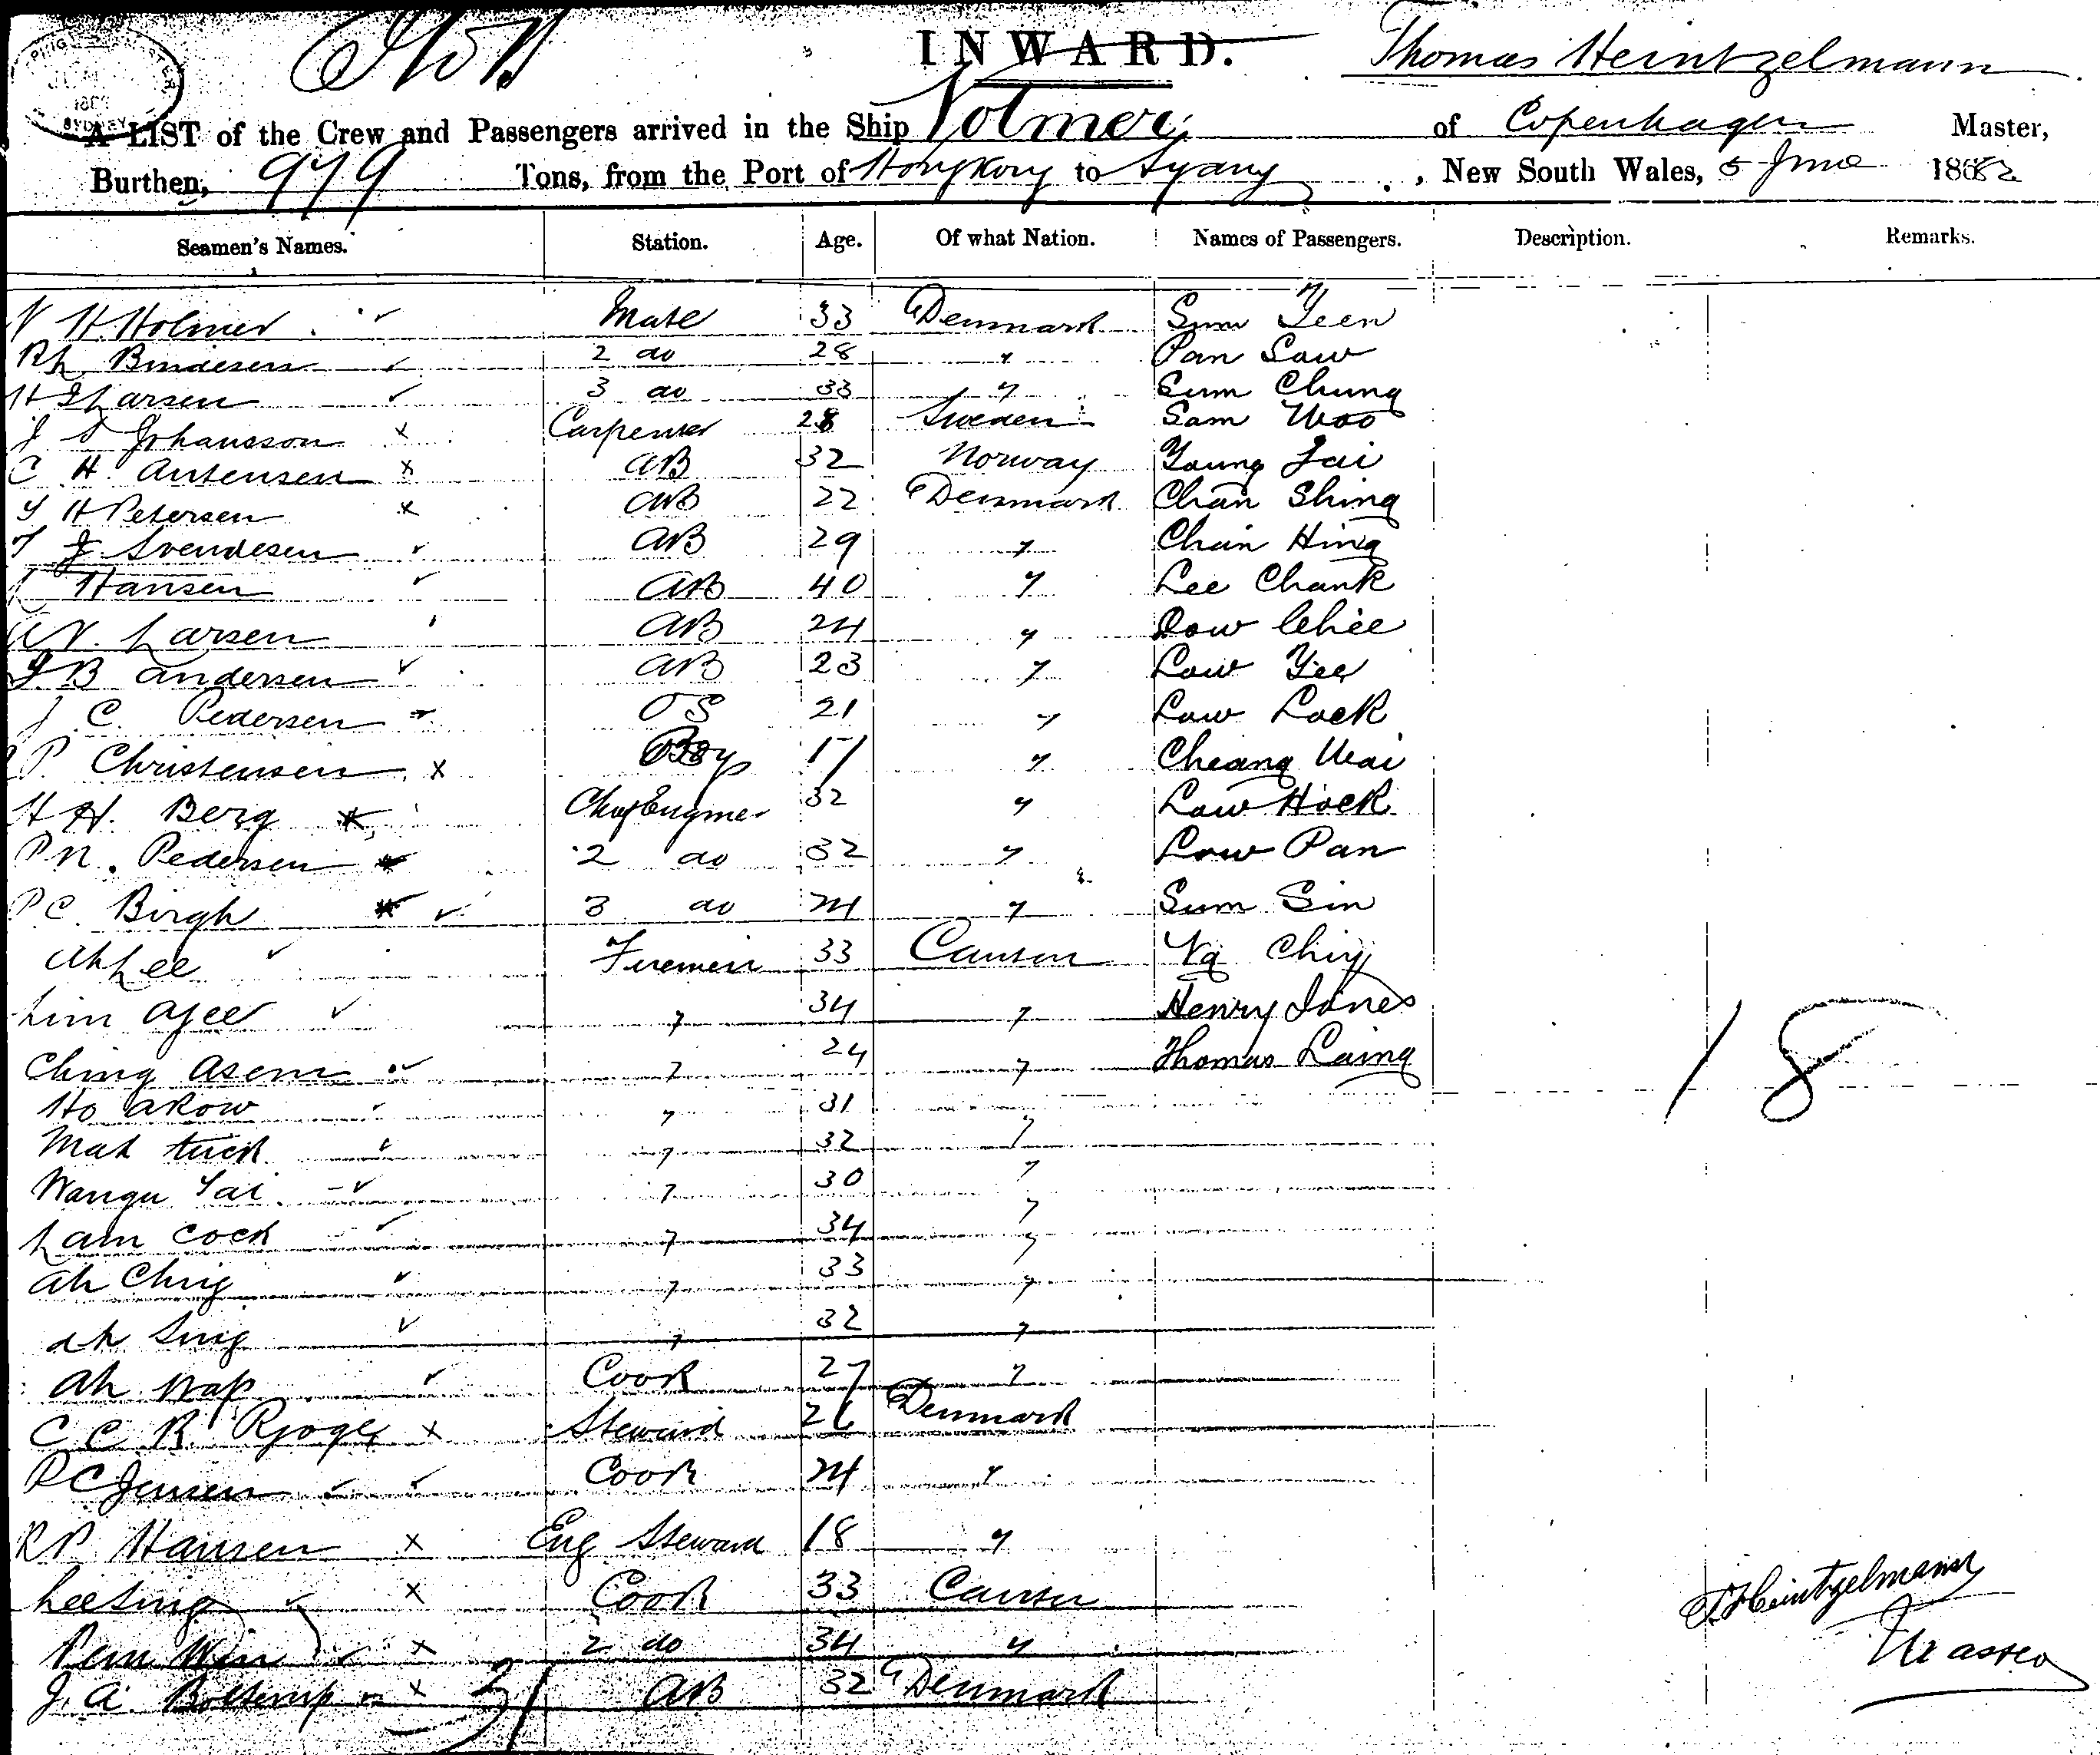 INWARD.
Thomas Heintzelmann
A LIST of the Crew and Passengers arrived in the Ship Volmer, of Copenhagen Master,
Burthen, 979 Tons, from the Port of Hongkong to Sydney, New South Wales, 5 June 1882
Seamen's Names. Station. Age. Of what Nation. Names of Passengers. Description. Remarks.
H. Holmer Mate 33 Denmark Sum Yeen
Bindesen 2 do 28 " Pan Law
Larsen 3 do 33 " Sum Chung
Johansson Carpenter 28 Sweden Sam Woo
C H Antensen AB 32 Norway Young Lai
H Petersen AB 22 Denmark Chan Shing
Svendesen AB 29 " Chan Hing
Hansen AB 40 " Lee Chank
Larsen AB 24 " Low Chee
B Andersen AB 23 " Low Yee
J C. Pedersen OS 21 " Low Lock
P. Christensen Boy 17 " Cheang Wai
H H. Berg Chief Engineer 32 " Low Hock
P N. Pedersen 2 do 32 " Low Pan
P C. Birgh 3 do 24 " Sum Sin
Ah Lee Firemen 33 Canton Ng Ching
Lim Ayee " 34 " Henry Jones
Ching Asem " 24 " Thomas Laing
Ho Akow " 31 "
Mak Tuck " 32 "
Tai " 30 "
Lam Cock " 34 "
Ah Ching " 33 "
Ah Sing " 32 "
Ah Wap Cook 27 "
C C R. Steward 26 Denmark
P C Jensen Cook 24 "
R P Hansen Eng Steward 18 "
Lee Sing Cook 33 Canton
2 do 34 "
J. A. AB 32 Denmark
31
18
T Heintzelmann
Master